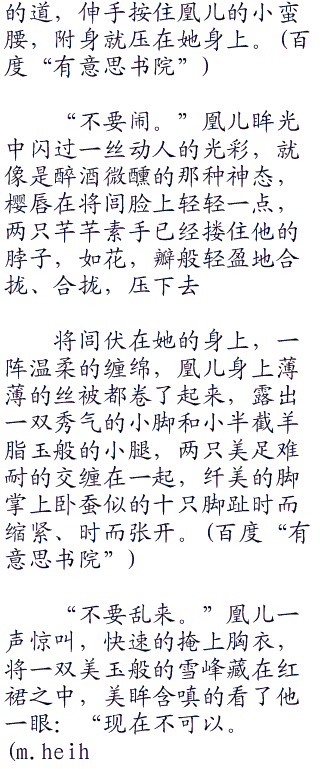 的道，伸手按住凰儿的小蛮
腰，附身就压在她身上。(百
度“有意思书院”)
“不要闹。”凰儿眸光
中闪过一丝动人的光彩，就
像是醉酒微醺的那种神态，
樱唇在将闾脸上轻轻一点，
两只芊芊素手已经搂住他的
脖子，如花，瓣般轻盈地合
拢、合拢，压下去
将闾伏在她的身上，一
阵温柔的缠绵，凰儿身上薄
薄的丝被都卷了起来，露出
一双秀气的小脚和小半截羊
脂玉般的小腿，两只美足难
耐的交缠在一起，纤美的脚
掌上卧蚕似的十只脚趾时而
缩紧、时而张开。(百度“有
意思书院”)
“不要乱来。”凰儿一
声惊叫，快速的掩上胸衣，
将一双美玉般的雪峰藏在红
裙之中，美眸含嗔的看了他
一眼：“现在不可以。
(m.heih